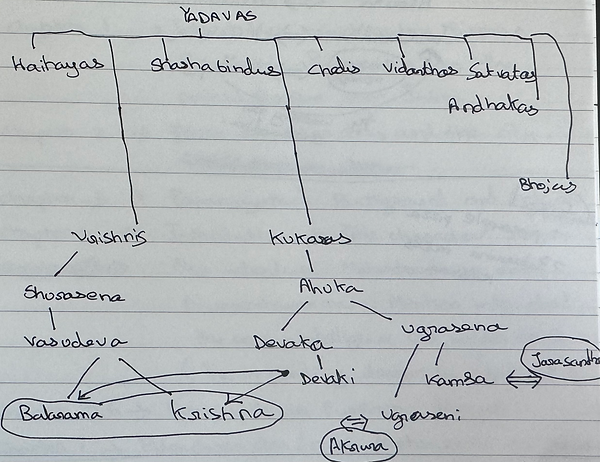 YADAVAS
Haihayas Shashabindus Chedis Vidarthas Satvatas
Andhakas
Bhojas
Vrishnis Kukuras
Shurasena Ahuka
Vasudeva Devaka Ugrasena
Devaki Kamsa Jarasandha
Balarama Krishna Ugraseni
Akrura